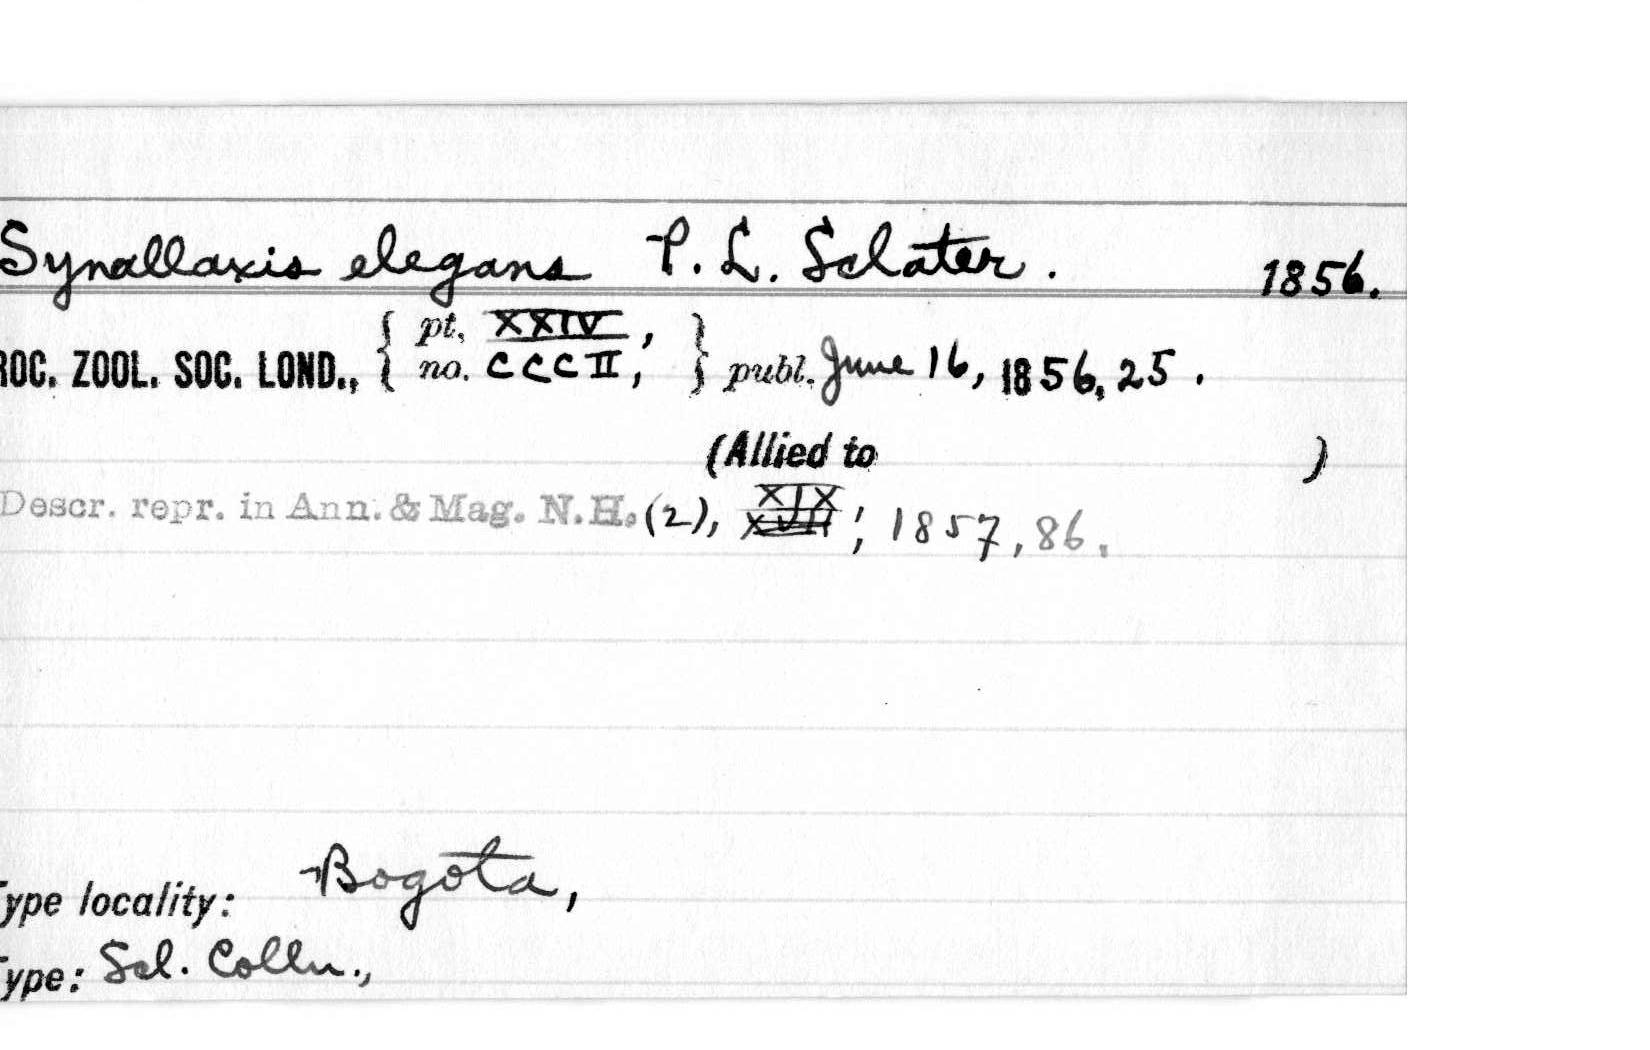 Synallaxis elegans P. L. Sclater. 1856.
ROC. ZOOL. SOC. LOND., { pt. XXIV, no. CCCII, } publ. June 16, 1856, 25.
(Allied to )
Descr. repr. in Ann. & Mag. N.H. (2), XIX, 1857, 86.
Type locality: Bogota,
Type: Scl. Colln.,